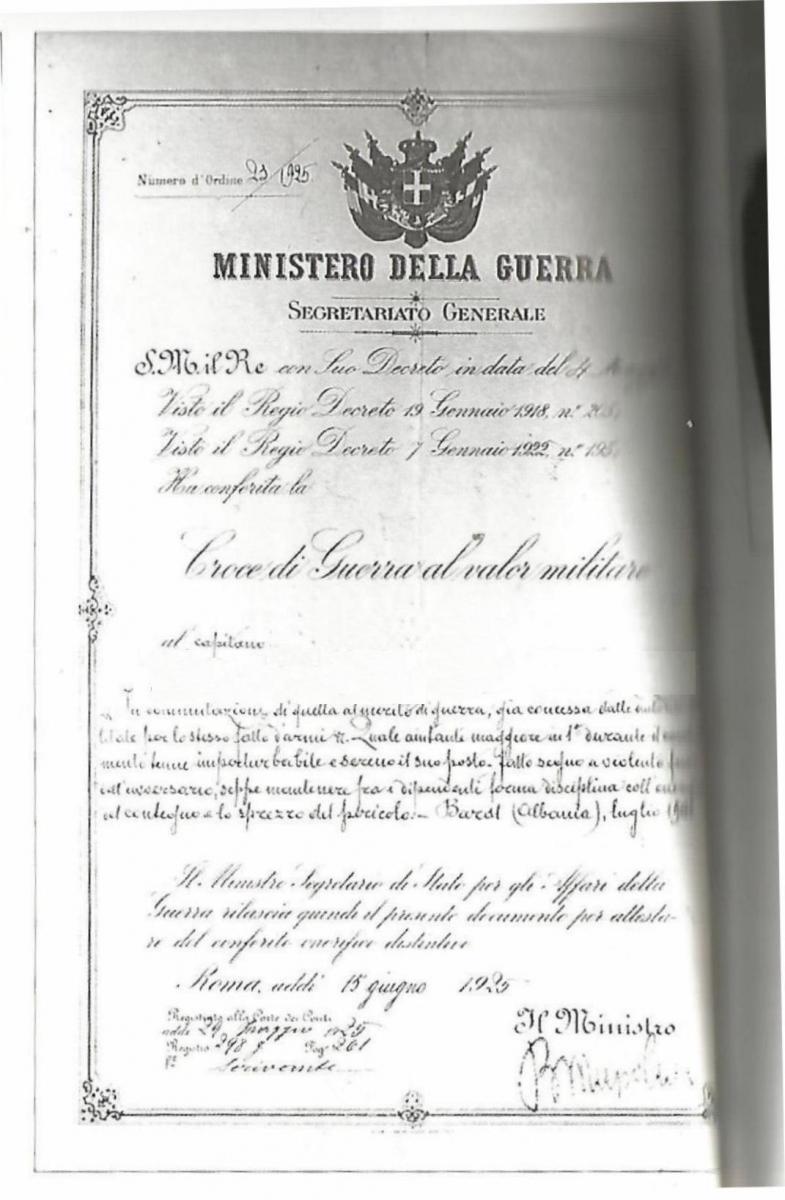 Numero d'Ordine 23/1925
MINISTERO DELLA GUERRA
SEGRETARIATO GENERALE
S.M. il Re con Suo Decreto in data del
Visto il Regio Decreto 19 Gennaio 1918, n.° 205
Visto il Regio Decreto 7 Gennaio 1922, n.° 195
Ha conferita la
Croce di Guerra al valor militare
al capitano
In commutazione di quella al merito di guerra, già concessa dalle
per lo stesso fatto d'armi Quale aiutante maggiore in 1° durante il
tenne imperturbabile e sereno il suo posto. Fatto segno a violento
avversario, seppe mantenere fra i dipendenti ferma disciplina coll'
contegno e lo sprezzo del pericolo.- (Albania), luglio
Il Ministro Segretario di Stato per gli Affari della
Guerra rilascia quindi il presente documento per attesta-
re del conferito onorifico distintivo
Roma, addì 15 giugno 1925
Registrato alla Corte dei Conti
addì 29 maggio 1925
Registro 298 Fog° 261
Il Ministro